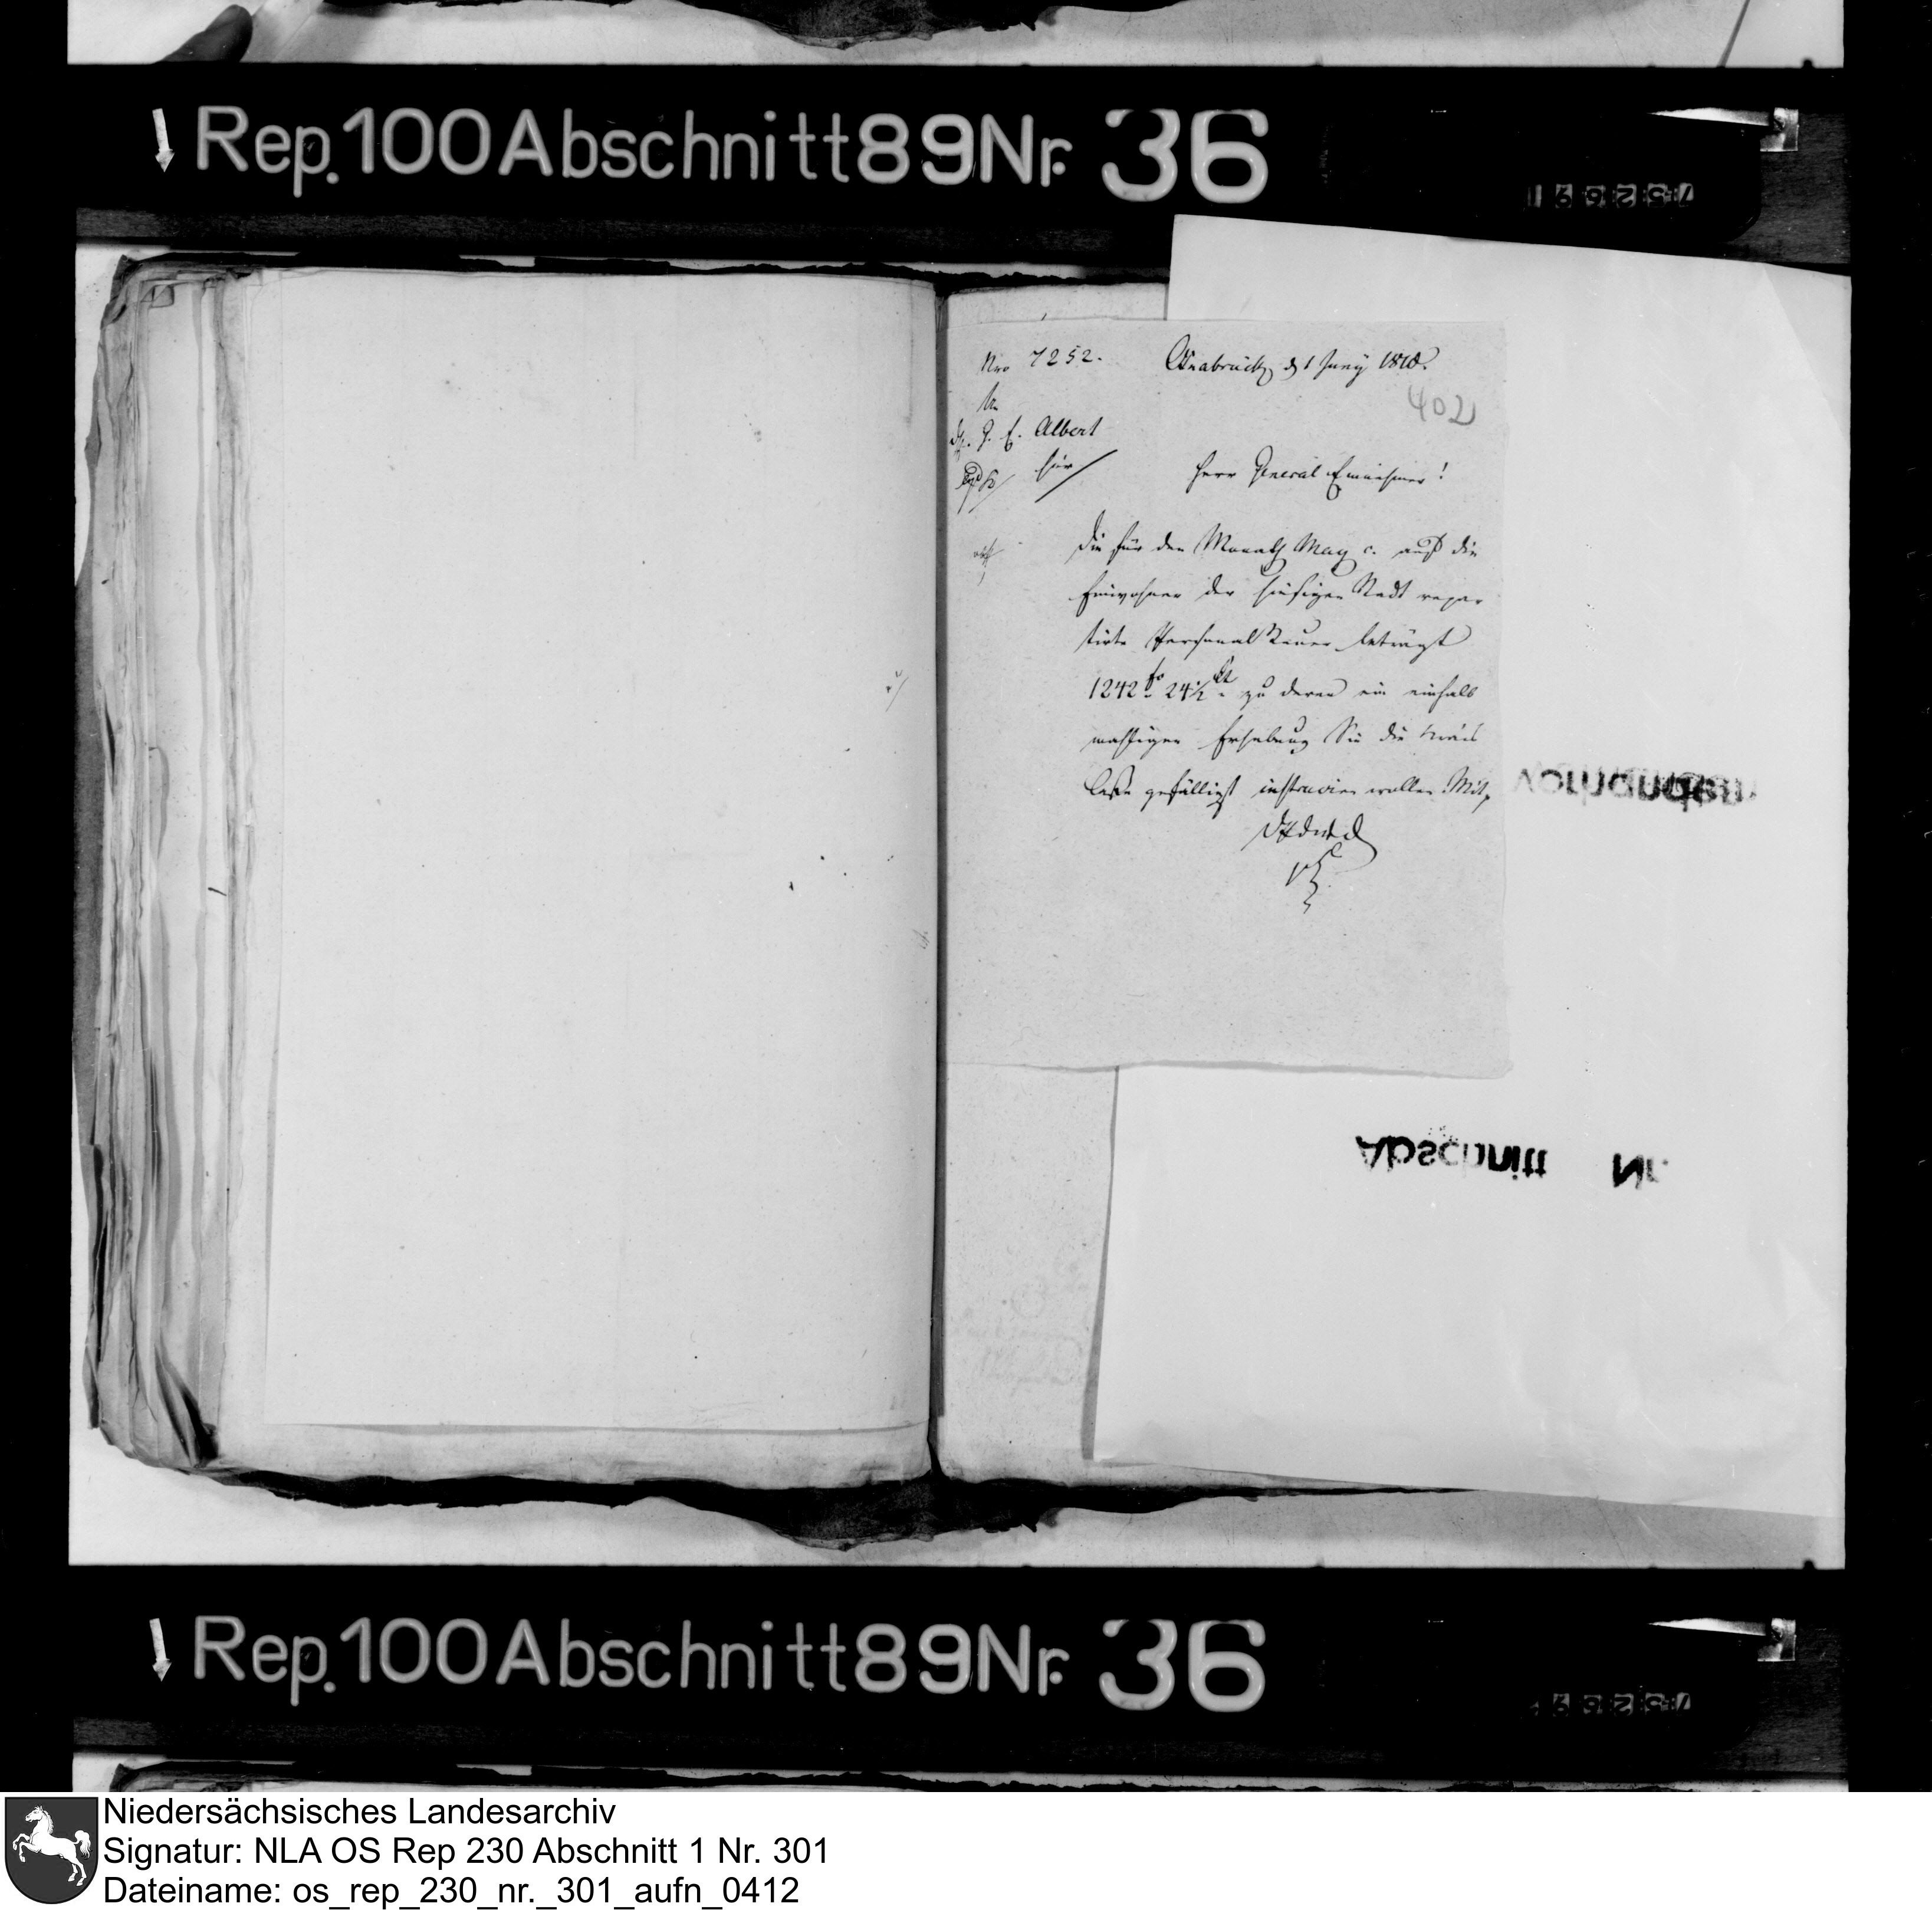 Rep. 100 Abschnitt 89 Nr. 36
Nro 7252. Osnabrück d 1 Juny 1810.
402
An
H. G. E. Albert
hier
Herr General Einnehmer!
Die für den Monath May c. auf die
Einwohner der hiesigen Stadt repar
tirte Personal Steuer beträgt
1242 fr 24 1/2 zu deren ein einhalb
mahligen Erhebung Sie die
gefälligst instruiren wollen. Mit
vorhanden
Abschnitt Nr.
Rep. 100 Abschnitt 89 Nr. 36
Niedersächsisches Landesarchiv
Signatur: NLA OS Rep 230 Abschnitt 1 Nr. 301
Dateiname: os_rep_230_nr._301_aufn_0412